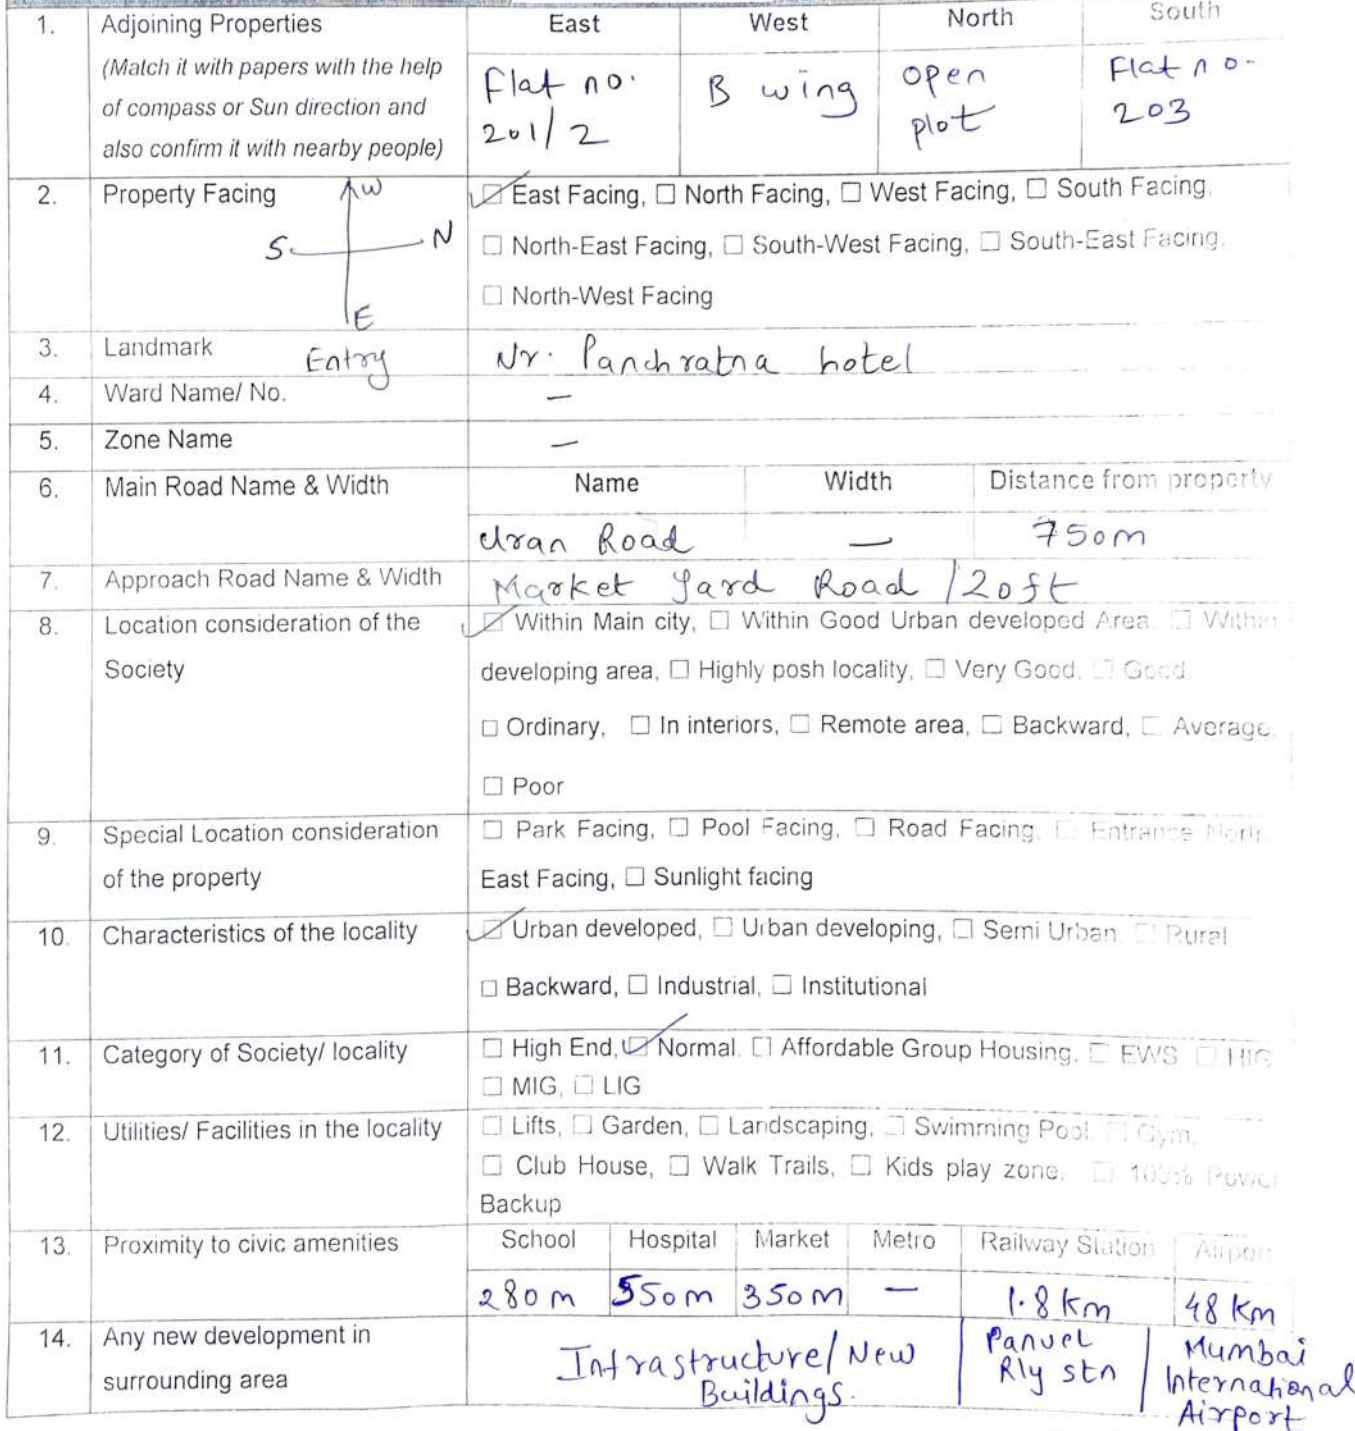 1. Adjoining Properties East West North South
(Match it with papers with the help
of compass or Sun direction and
also confirm it with nearby people)
Flat no. 201/2
B wing
open plot
Flat no. 203
2. Property Facing
W
S N
E
Entry
☑ East Facing, ☐ North Facing, ☐ West Facing, ☐ South Facing,
☐ North-East Facing, ☐ South-West Facing, ☐ South-East Facing,
☐ North-West Facing
3. Landmark Nr. Panchratna hotel
4. Ward Name/ No. –
5. Zone Name –
6. Main Road Name & Width Name Width Distance from property
Uran Road – 750m
7. Approach Road Name & Width Market Yard Road /20ft
8. Location consideration of the
Society
☑ Within Main city, ☐ Within Good Urban developed Area, ☐ Within
developing area, ☐ Highly posh locality, ☐ Very Good, ☐ Good
☐ Ordinary, ☐ In interiors, ☐ Remote area, ☐ Backward, ☐ Average,
☐ Poor
9. Special Location consideration
of the property
☐ Park Facing, ☐ Pool Facing, ☐ Road Facing, ☐ Entrance North
East Facing, ☐ Sunlight facing
10. Characteristics of the locality
☑ Urban developed, ☐ Urban developing, ☐ Semi Urban, ☐ Rural,
☐ Backward, ☐ Industrial, ☐ Institutional
11. Category of Society/ locality
☐ High End, ☑ Normal, ☐ Affordable Group Housing, ☐ EWS ☐ HIG
☐ MIG, ☐ LIG
12. Utilities/ Facilities in the locality
☐ Lifts, ☐ Garden, ☐ Landscaping, ☐ Swimming Pool, ☐ Gym,
☐ Club House, ☐ Walk Trails, ☐ Kids play zone, ☐ 100% Power
Backup
13. Proximity to civic amenities School Hospital Market Metro Railway Station Airport
280m 550m 350m – 1.8 Km 48 Km
Panvel
Rly stn
Mumbai
International
Airport
14. Any new development in
surrounding area
Infrastructure/New
Buildings.